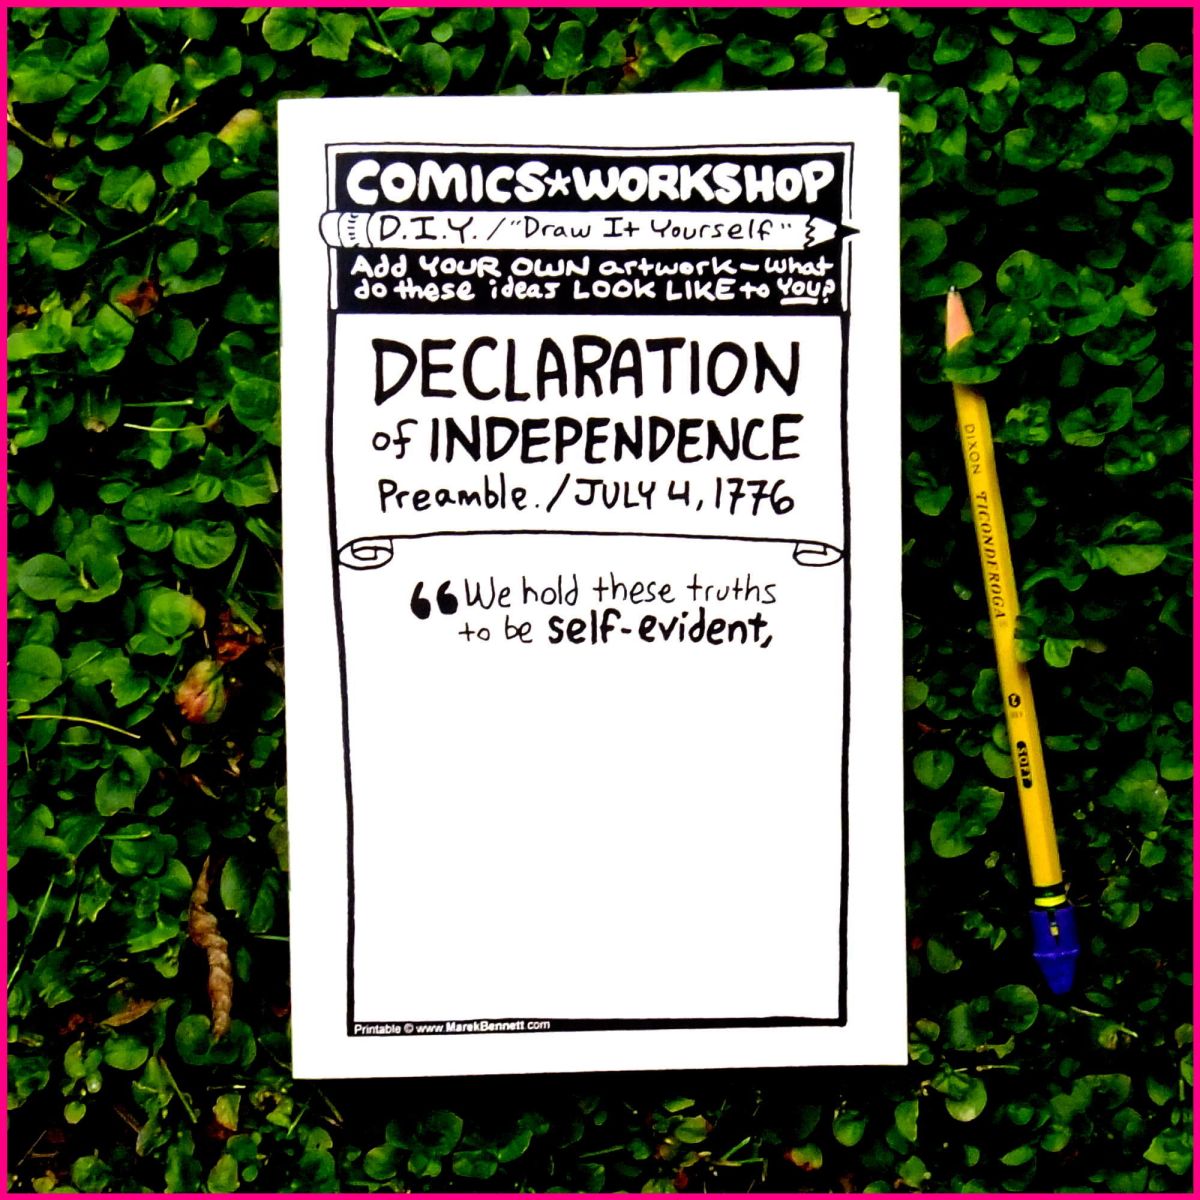 COMICS*WORKSHOP
D.I.Y. / "Draw It Yourself"
Add YOUR OWN artwork – what
do these ideas LOOK LIKE to YOU?
DECLARATION
of INDEPENDENCE
Preamble. / JULY 4, 1776
“We hold these truths
to be self-evident,
Printable © www.MarekBennett.com
DIXON TICONDEROGA
2
SOFT